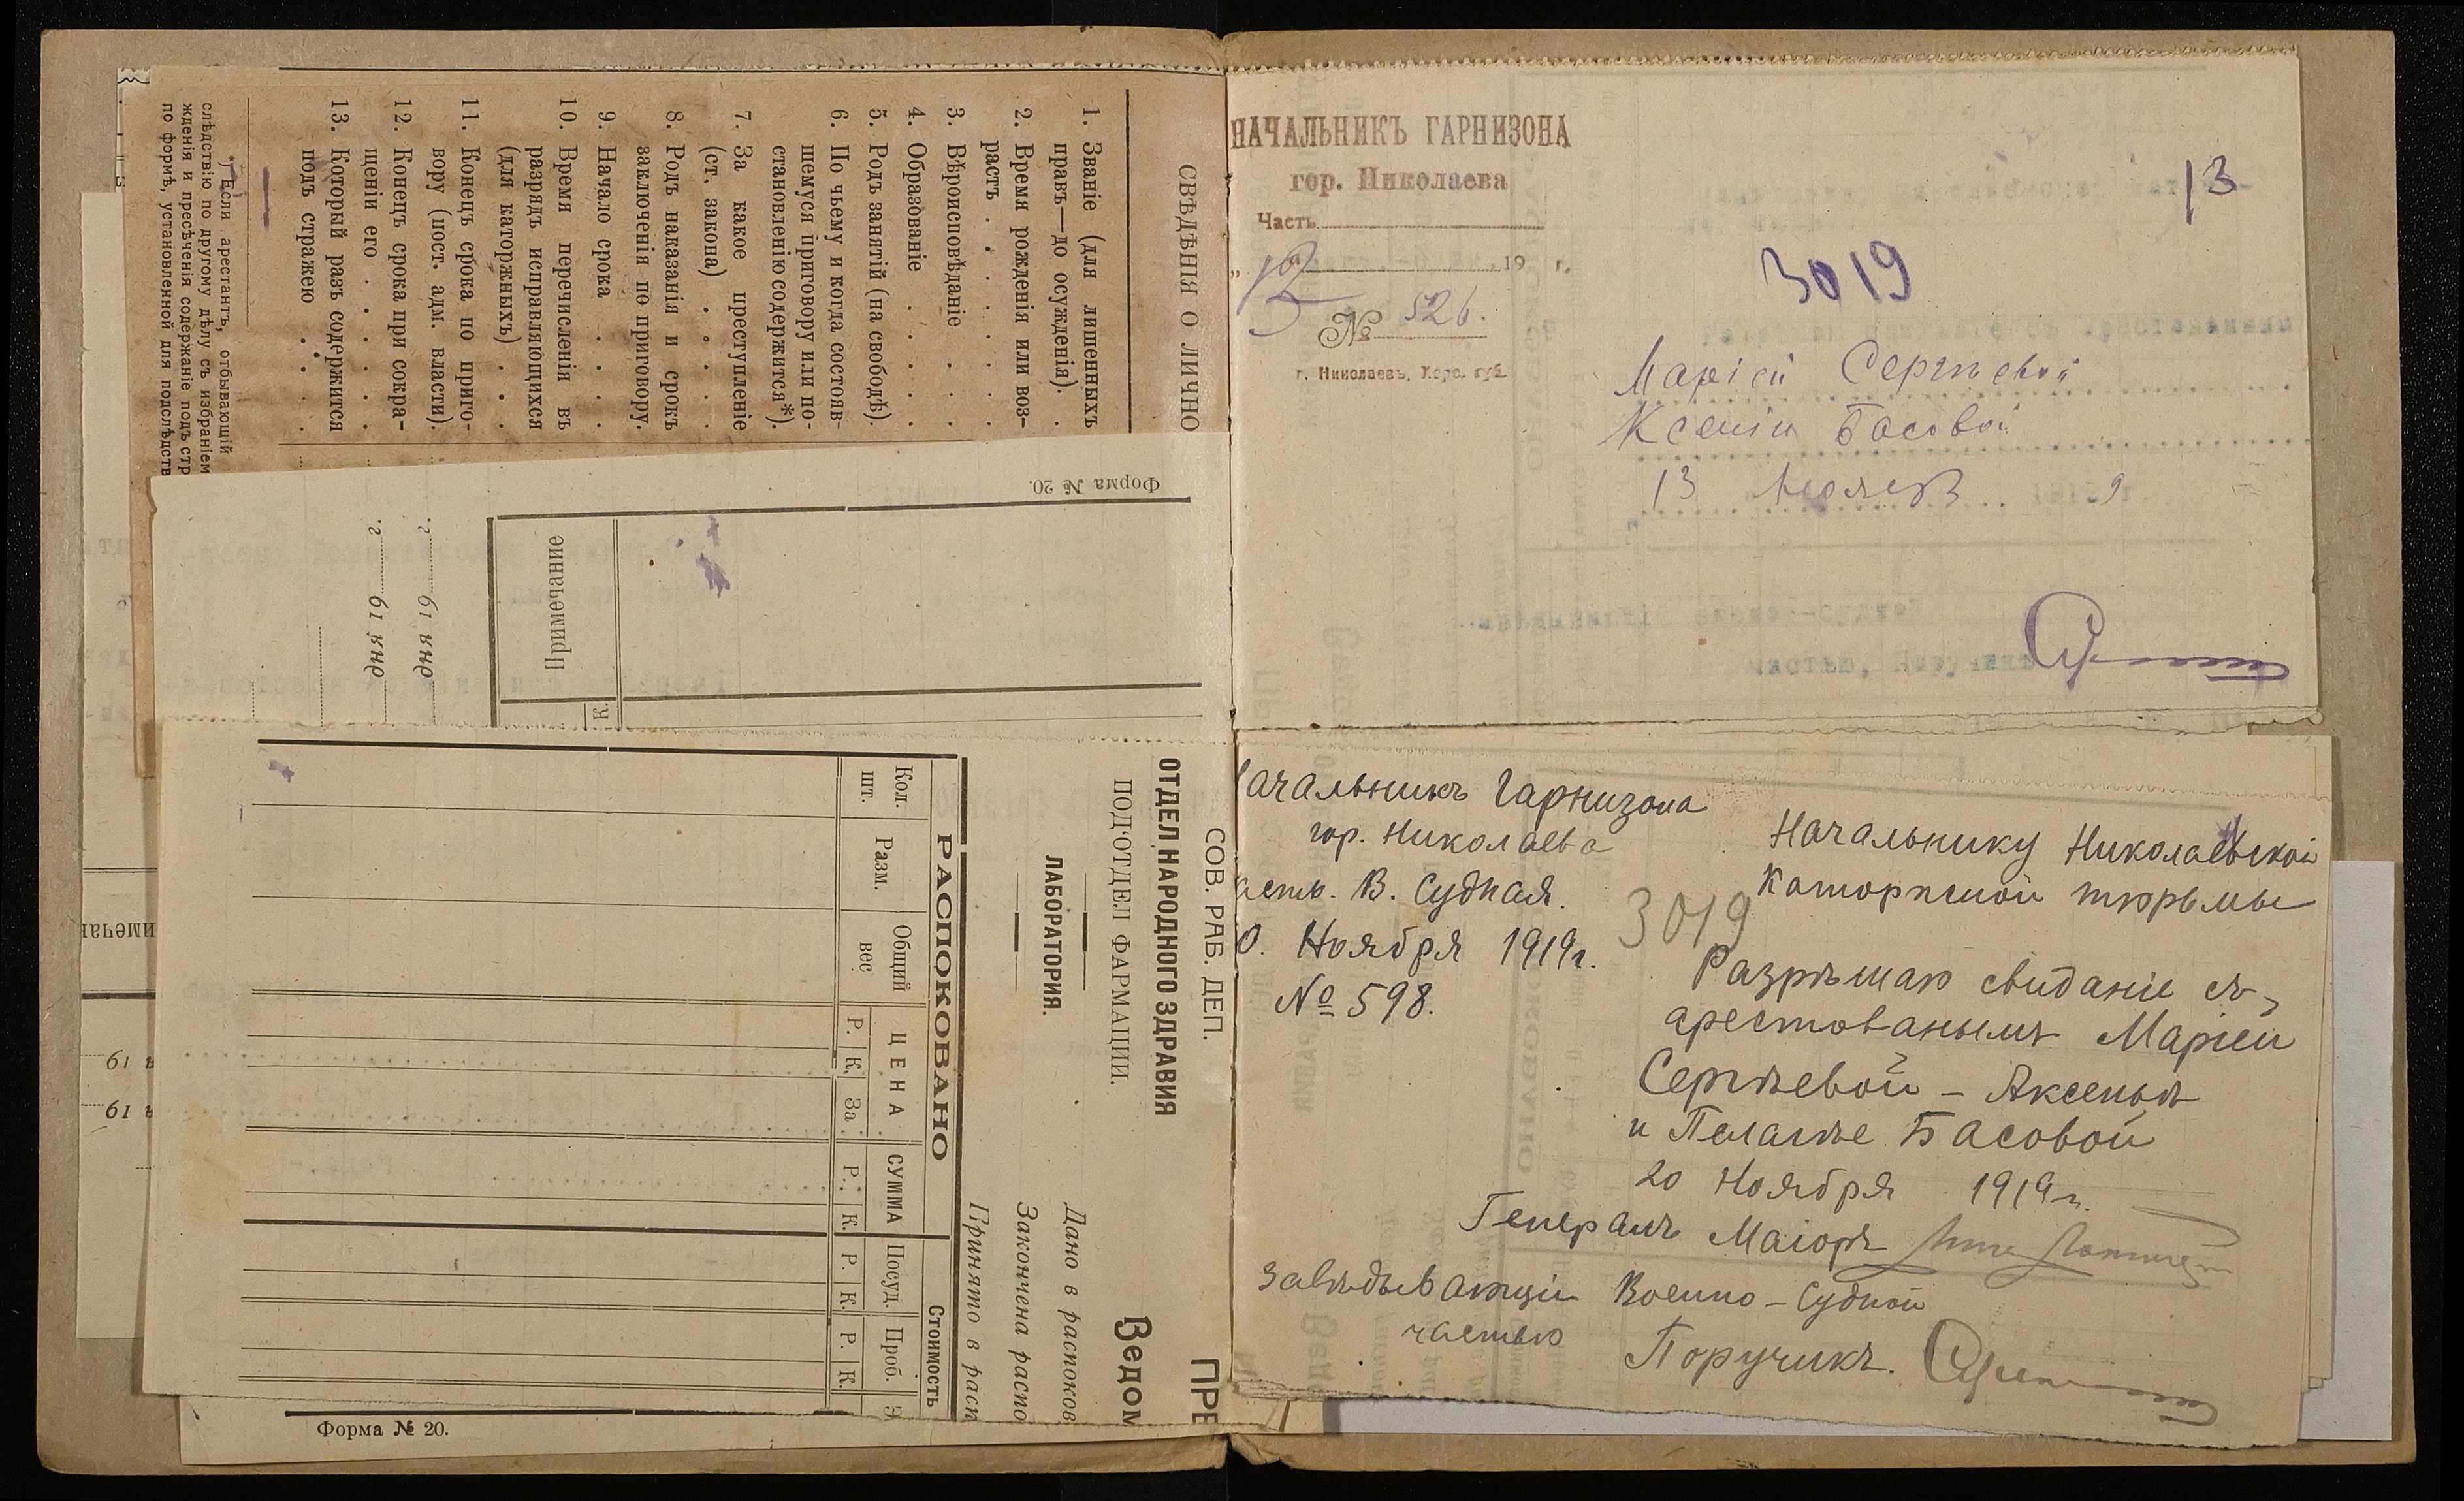 СВѢДѢНІЯ О ЛИЧНО
1. Званіе (для лишенныхъ
правъ—до осужденія). .
2. Время рожденія или воз-
растъ . . . . . .
3. Вѣроисповѣданіе . . .
4. Образованіе . . . .
5. Родъ занятій (на свободѣ).
6. По чьему и когда состояв-
шемуся приговору или по-
становленію содержится*).
7. За какое преступленіе
(ст. закона) . . . .
8. Родъ наказанія и срокъ
заключенія по приговору.
9. Начало срока . . . .
10. Время перечисленія въ
разрядъ исправляющихся
(для каторжныхъ) . . .
11. Конецъ срока по приго-
вору (пост. адм. власти).
12. Конецъ срока при сокра-
щеніи его . . . . .
13. Который разъ содержится
подъ стражею . . . .
*) Если арестантъ, отбывающій
слѣдствію по другому дѣлу съ избраніем
жденія и пресѣченія содержаніе подъ стр
по формѣ, установленной для подслѣдств
Форма № 20.
Примечание
К.
дня 19 г.
дня 19 г.
СОВ. РАБ. ДЕП.
ОТДЕЛ НАРОДНОГО ЗДРАВИЯ
ПОД'ОТДЕЛ ФАРМАЦИИ.
ЛАБОРАТОРИЯ.
ПРЕ
Ведом
Дано в распоков
Закончена распо
Принято в расп
РАСПОКОВАНО
Стоимость
Кол. шт.
Разм.
Общий вес
ЦЕНА
СУММА
Посуд.
Проб.
Э
Р. К. За
Р. К.
Р. К.
Р. К.
Форма № 20.
имечан
я 19
я 19
НАЧАЛЬНИКЪ ГАРНИЗОНА
гор. Николаева
Часть
19 г.
№ 526.
г. Николаевъ, Херс. губ.
13
3019
Маріей Сергѣевой
Ксеніи Басовой
13 Ноября 9
ачальникъ Гарнизона
гор. Николаева
асть. В. Судная.
0. Ноября 1919г.
№ 598.
Начальнику Николаевской
Каторжной тюрьмы
3019
Разрѣшаю свиданіе съ
арестованымъ Маріей
Сергѣевой - Аксеньѣ
и Пелагѣе Басовой
20 Ноября 1919г.
Генералъ Маіоръ
Завѣдывающій Военно-Судной
частью
Поручикъ.